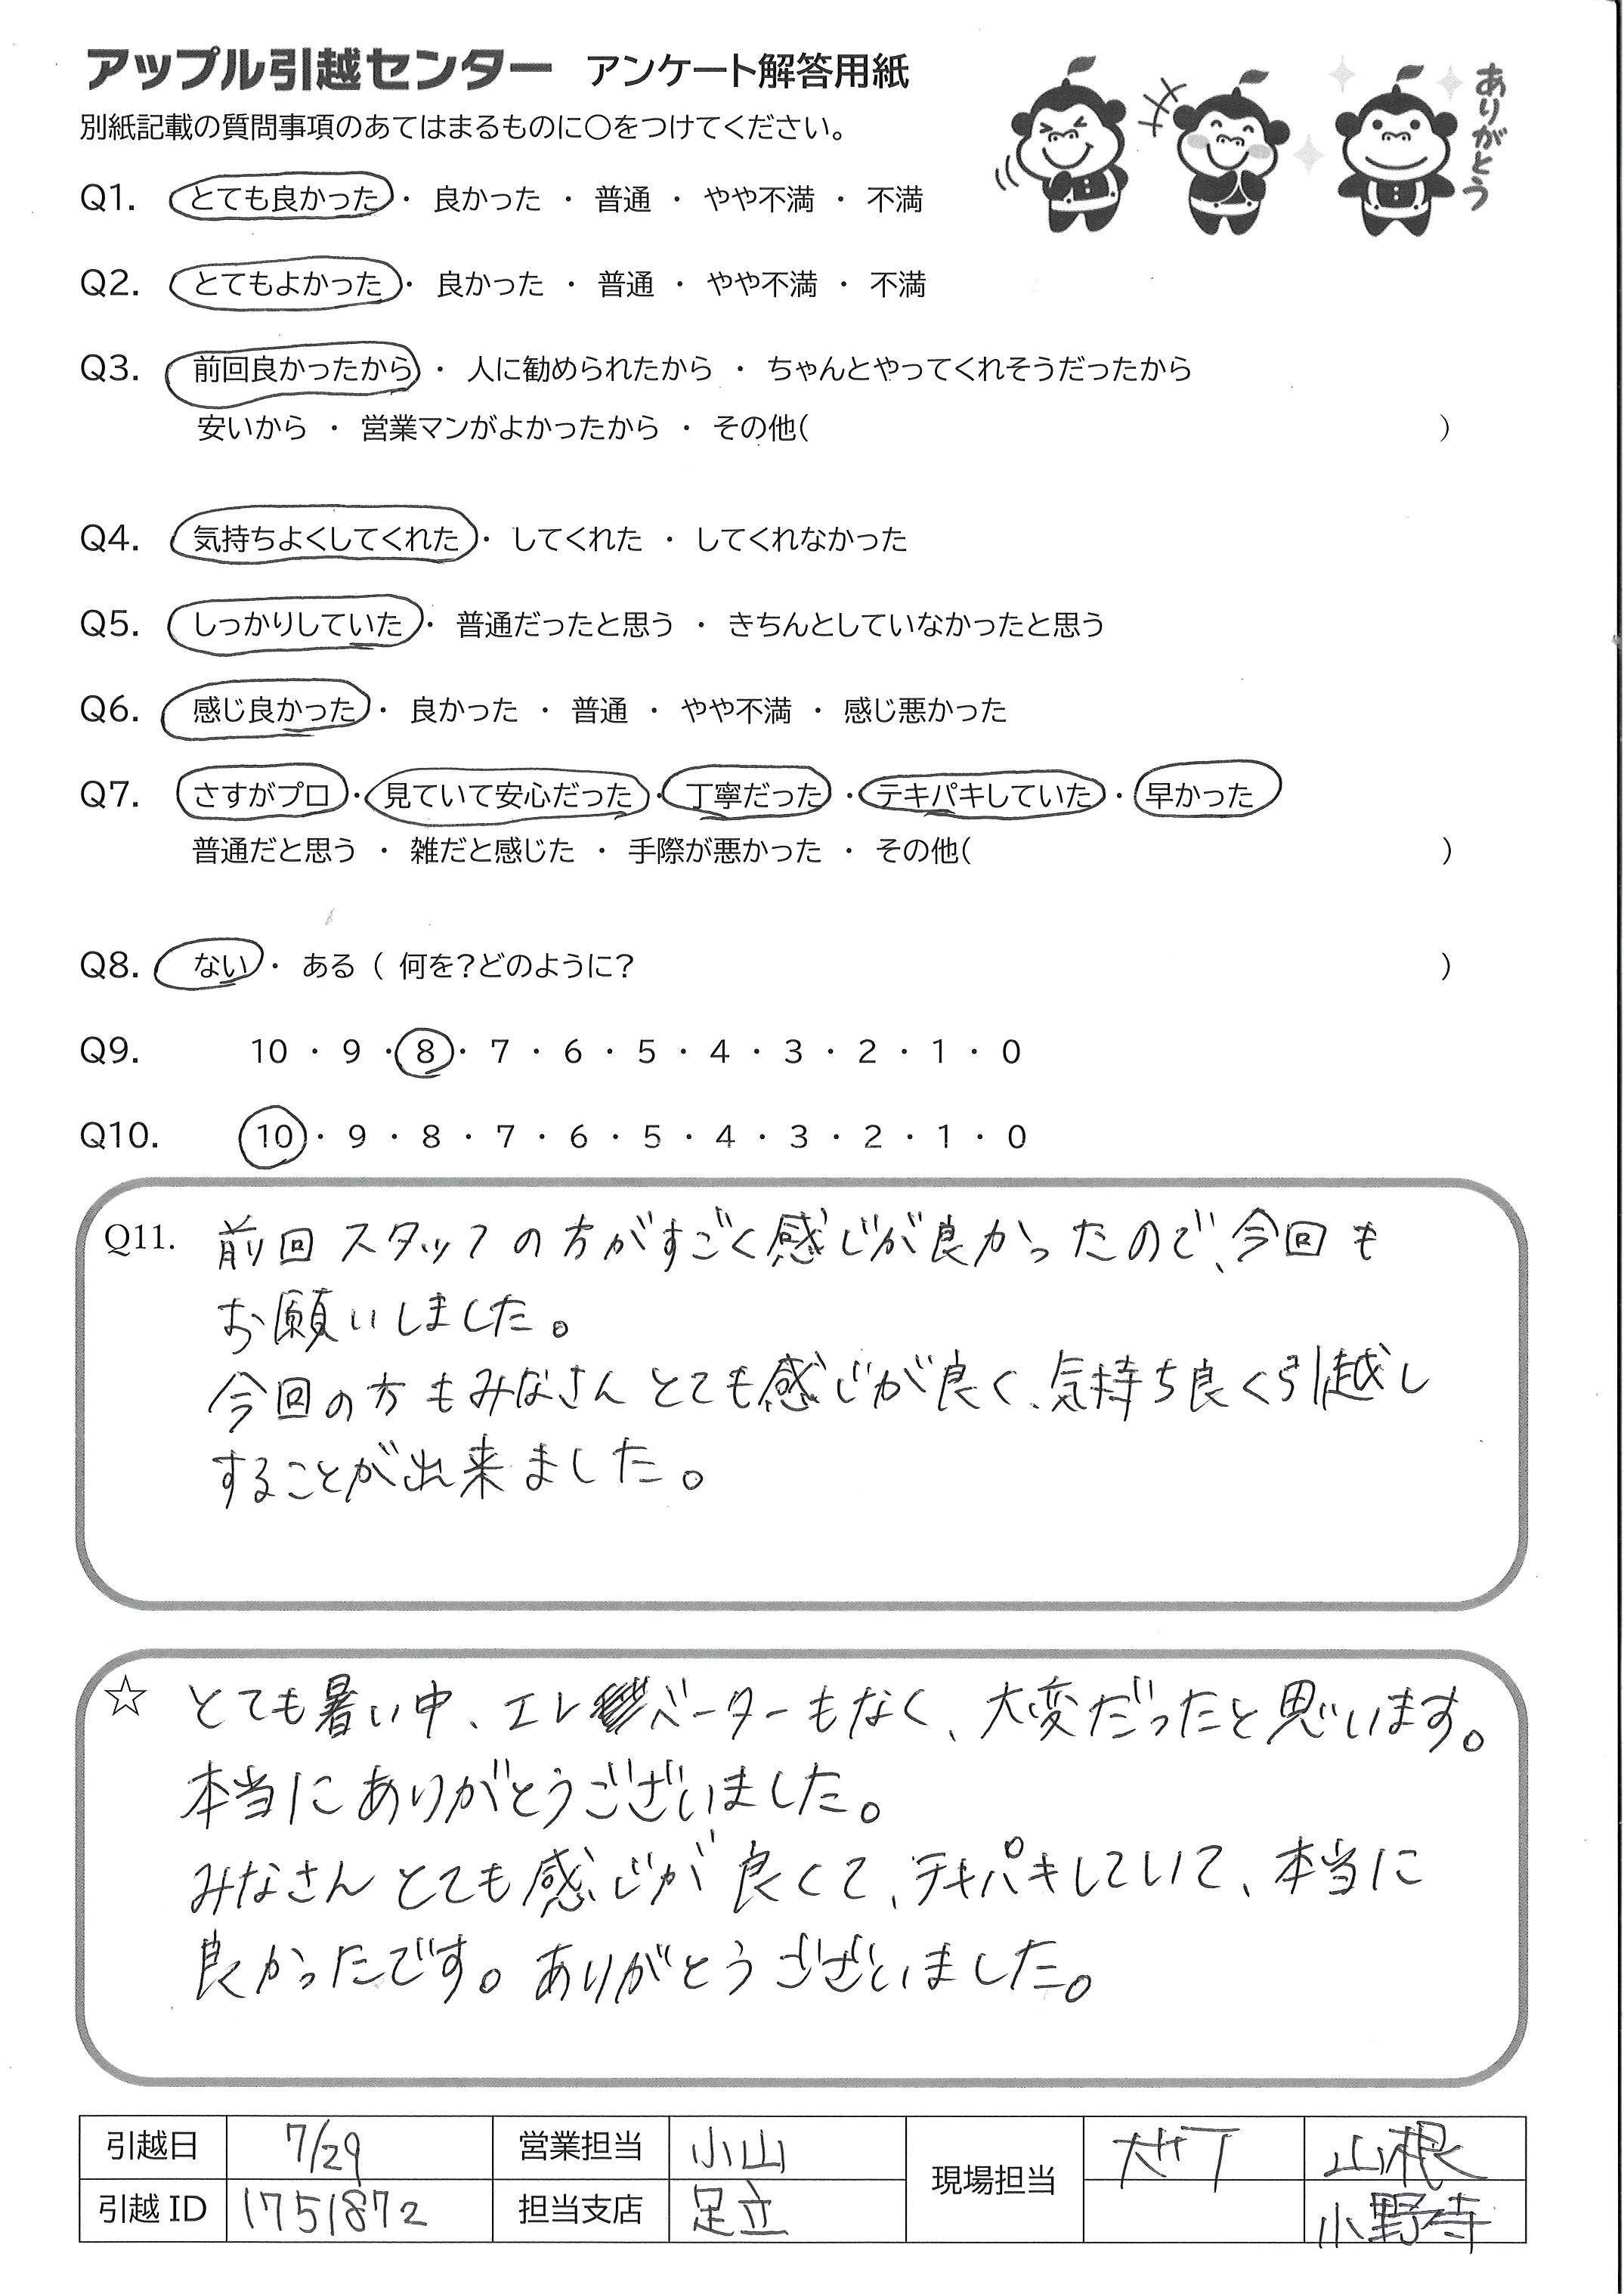 アップル引越センター アンケート解答用紙
ありがとう
別紙記載の質問事項のあてはまるものに○をつけてください。
Q1. とても良かった ・ 良かった ・ 普通 ・ やや不満 ・ 不満
Q2. とてもよかった ・ 良かった ・ 普通 ・ やや不満 ・ 不満
Q3. 前回良かったから ・ 人に勧められたから ・ ちゃんとやってくれそうだったから
安いから ・ 営業マンがよかったから ・ その他( )
Q4. 気持ちよくしてくれた ・ してくれた ・ してくれなかった
Q5. しっかりしていた ・ 普通だったと思う ・ きちんとしていなかったと思う
Q6. 感じ良かった ・ 良かった ・ 普通 ・ やや不満 ・ 感じ悪かった
Q7. さすがプロ ・ 見ていて安心だった ・ 丁寧だった ・ テキパキしていた ・ 早かった
普通だと思う ・ 雑だと感じた ・ 手際が悪かった ・ その他( )
Q8. ない ・ ある ( 何を?どのように? )
Q9. 10 ・ 9 ・ 8 ・ 7 ・ 6 ・ 5 ・ 4 ・ 3 ・ 2 ・ 1 ・ 0
Q10. 10 ・ 9 ・ 8 ・ 7 ・ 6 ・ 5 ・ 4 ・ 3 ・ 2 ・ 1 ・ 0
Q11. 前回スタッフの方がすごく感じが良かったので、今回も
お願いしました。
今回の方もみなさんとても感じが良く、気持ち良く引越し
することが出来ました。
☆ とても暑い中、エレベーターもなく、大変だったと思います。
本当にありがとうございました。
みなさんとても感じが良くて、テキパキしていて、本当に
良かったです。ありがとうございました。
引越日 7/29 営業担当 小山 現場担当 山根
引越ID 1751872 担当支店 足立 小野寺